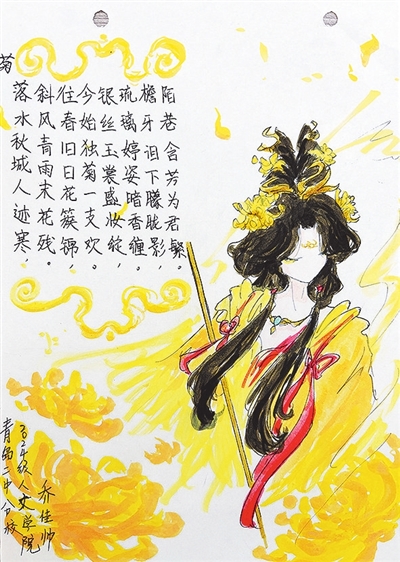 菊
落水秋城人迹寒，
斜风青雨末花残。
往春旧日花簇锦，
今始独菊一支欢。
银丝玉裳盛妆绽，
琉璃婷姿暗香缠。
檐牙诅下朦胧影，
陌巷含芳为君繁。
青岛二中分校
2024级人文学院
乔佳帅